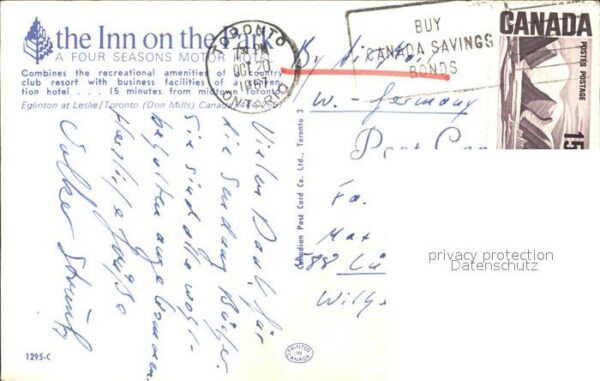 the Inn on the Park
A FOUR SEASONS MOTOR HOTEL
Combines the recreational amenities of a country
club resort with business facilities of a
tion hotel . . . 15 minutes from midtown Toronto.
Eglinton at Leslie/Toronto (Don Mills) Canada
Vielen Dank für
die Sendung Bücher.
Sie sind alle wohl-
behalten angekommen.
Herzliche Grüße
Volker
1295-C
Canadian Post Card Co. Ltd., Toronto 3
PRINTED
IN
CANADA
TORONTO
PM
OCT
1967
ONTARIO
BUY
CANADA SAVINGS
BONDS
CANADA
POSTES POSTAGE
15
By Air Mail
W.-Germany
Post Card
Fa.
Max
88
privacy protection
Datenschutz